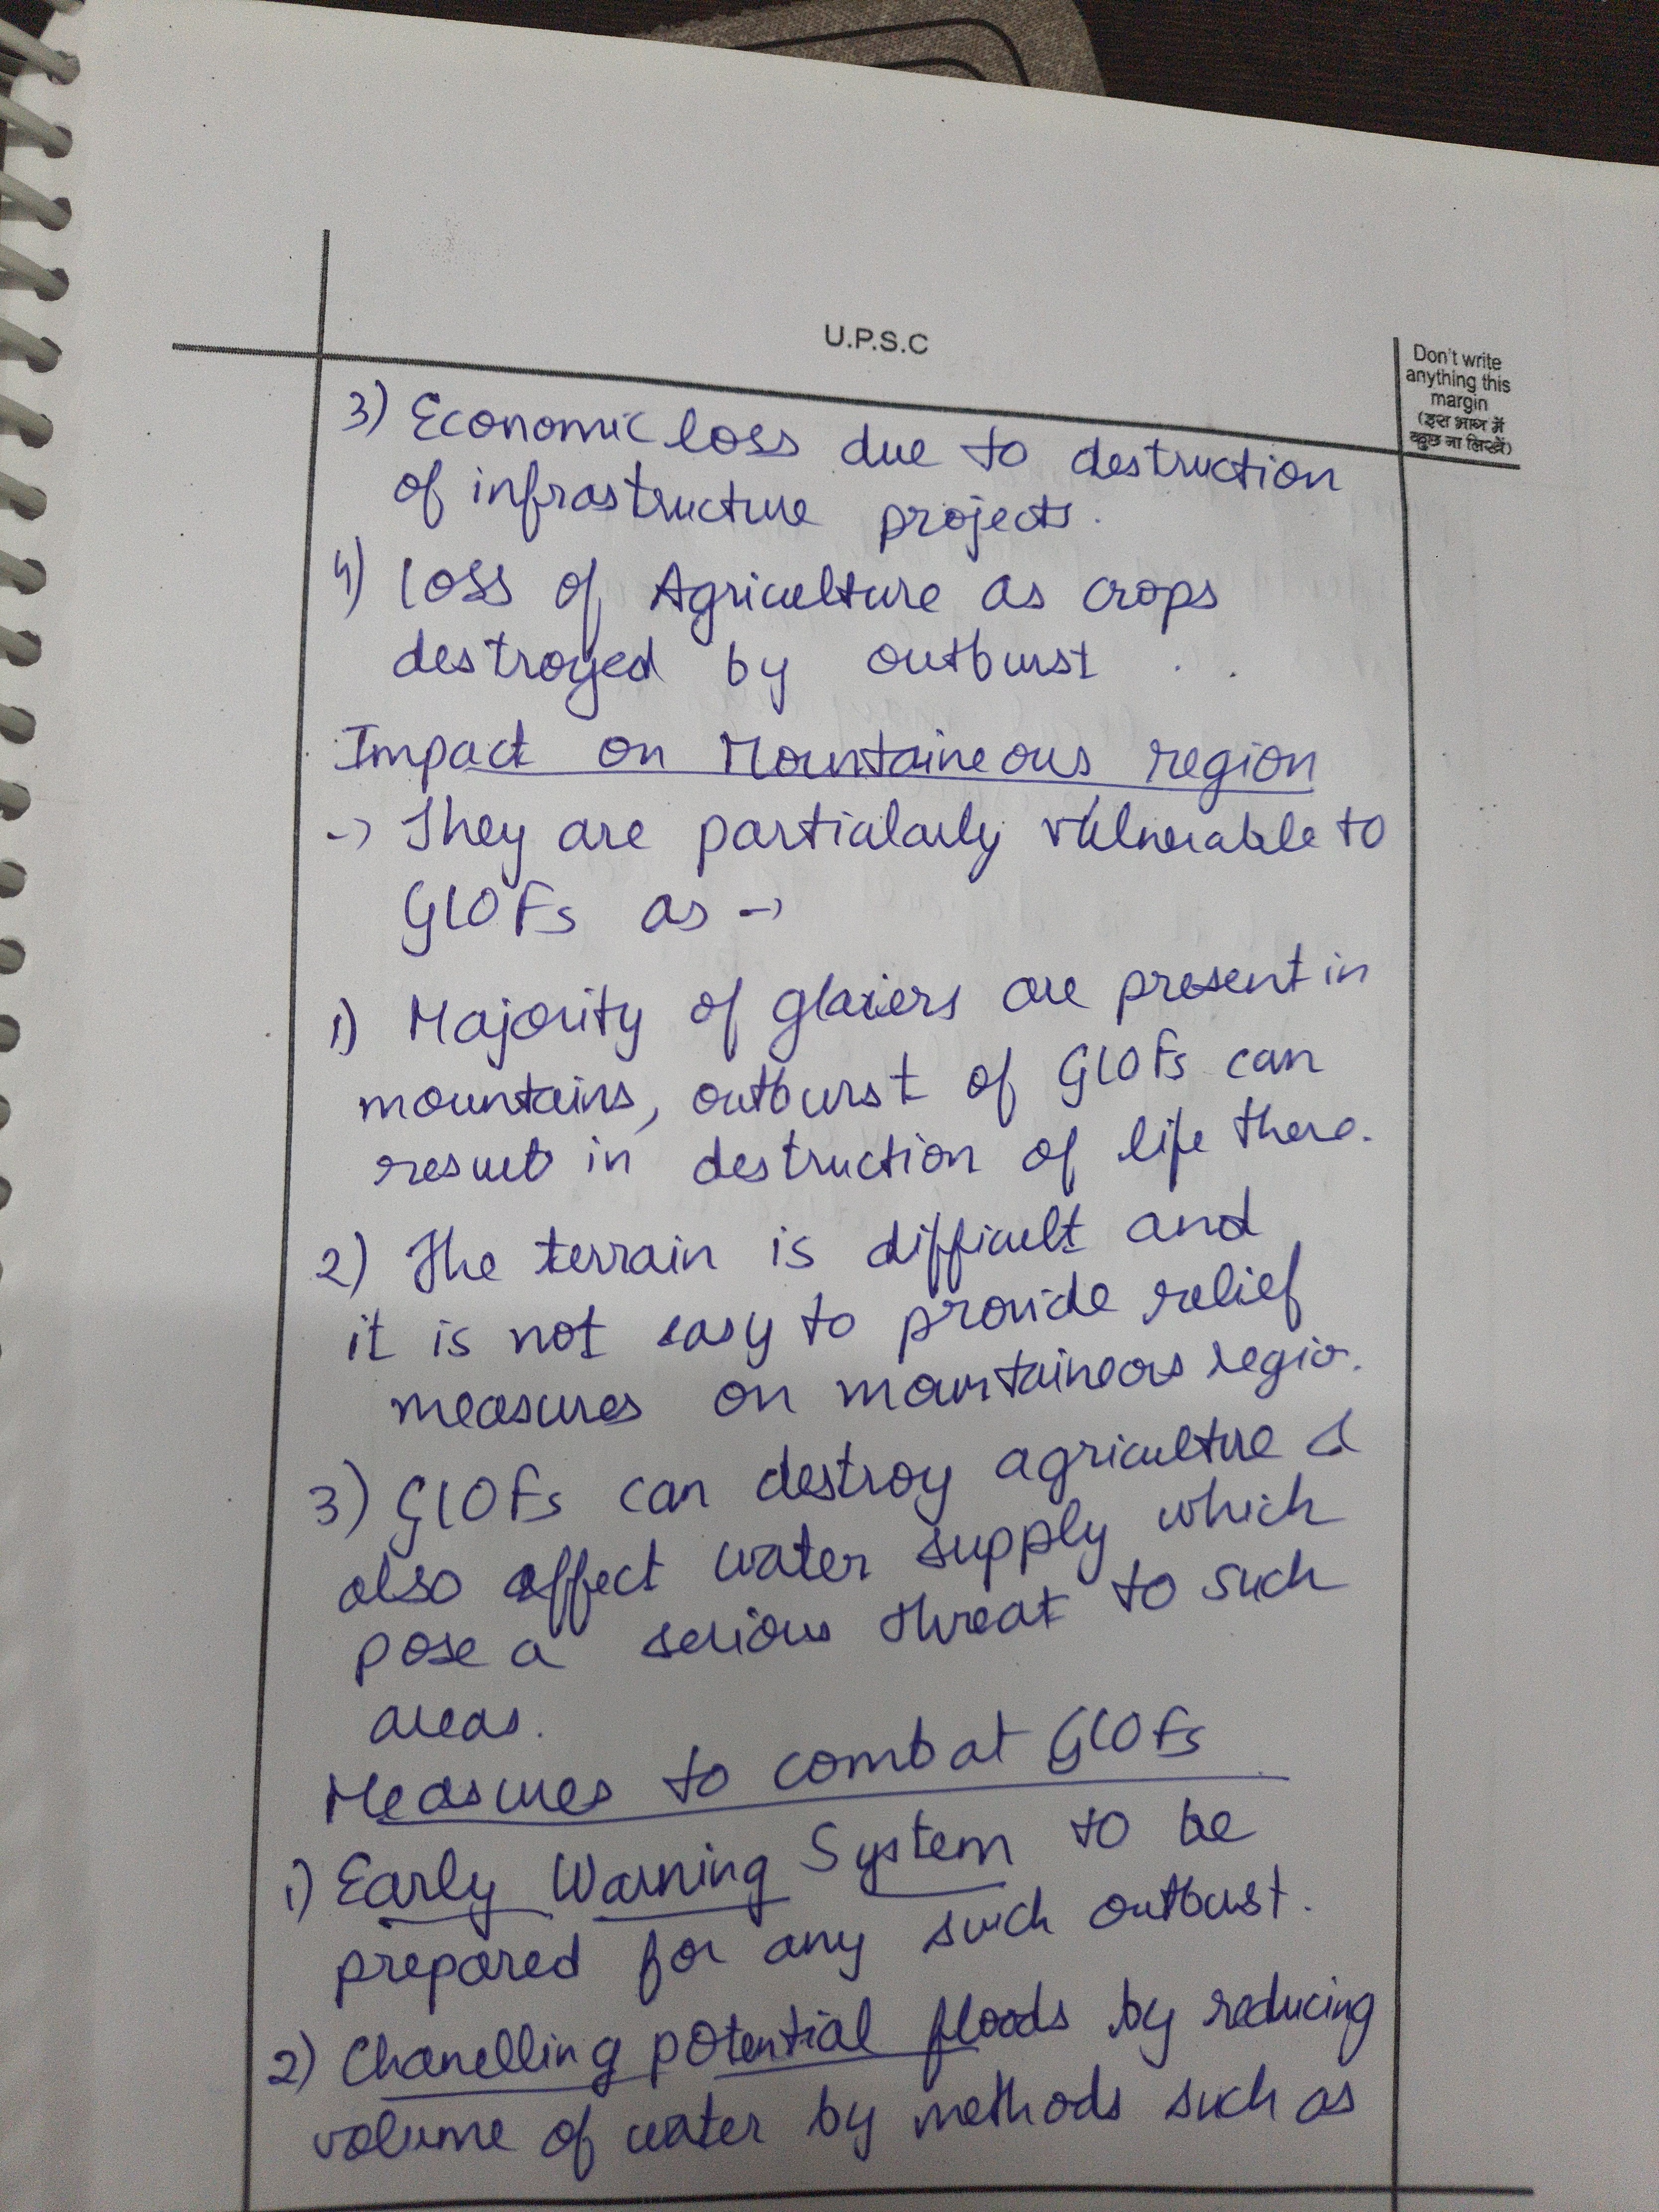 U.P.S.C
Don't write
anything this
margin
(इस भाग में
कुछ ना लिखें)
3) Economic loss due to destruction
of infrastructure projects.
4) Loss of Agriculture as crops
destroyed by outburst.
Impact on Mountaineous region
→ They are particularly vulnerable to
GLOFs as →
1) Majority of glaciers are present in
mountains, outburst of GLOFs can
result in destruction of life there.
2) The terrain is difficult and
it is not easy to provide relief
measures on mountaineous regio.
3) GLOFs can destroy agriculture &
also affect water supply which
pose a serious threat to such
areas.
Measures to combat GLOFs
1) Early Warning System to be
prepared for any such outburst.
2) Chanelling potential floods by reducing
volume of water by methods such as